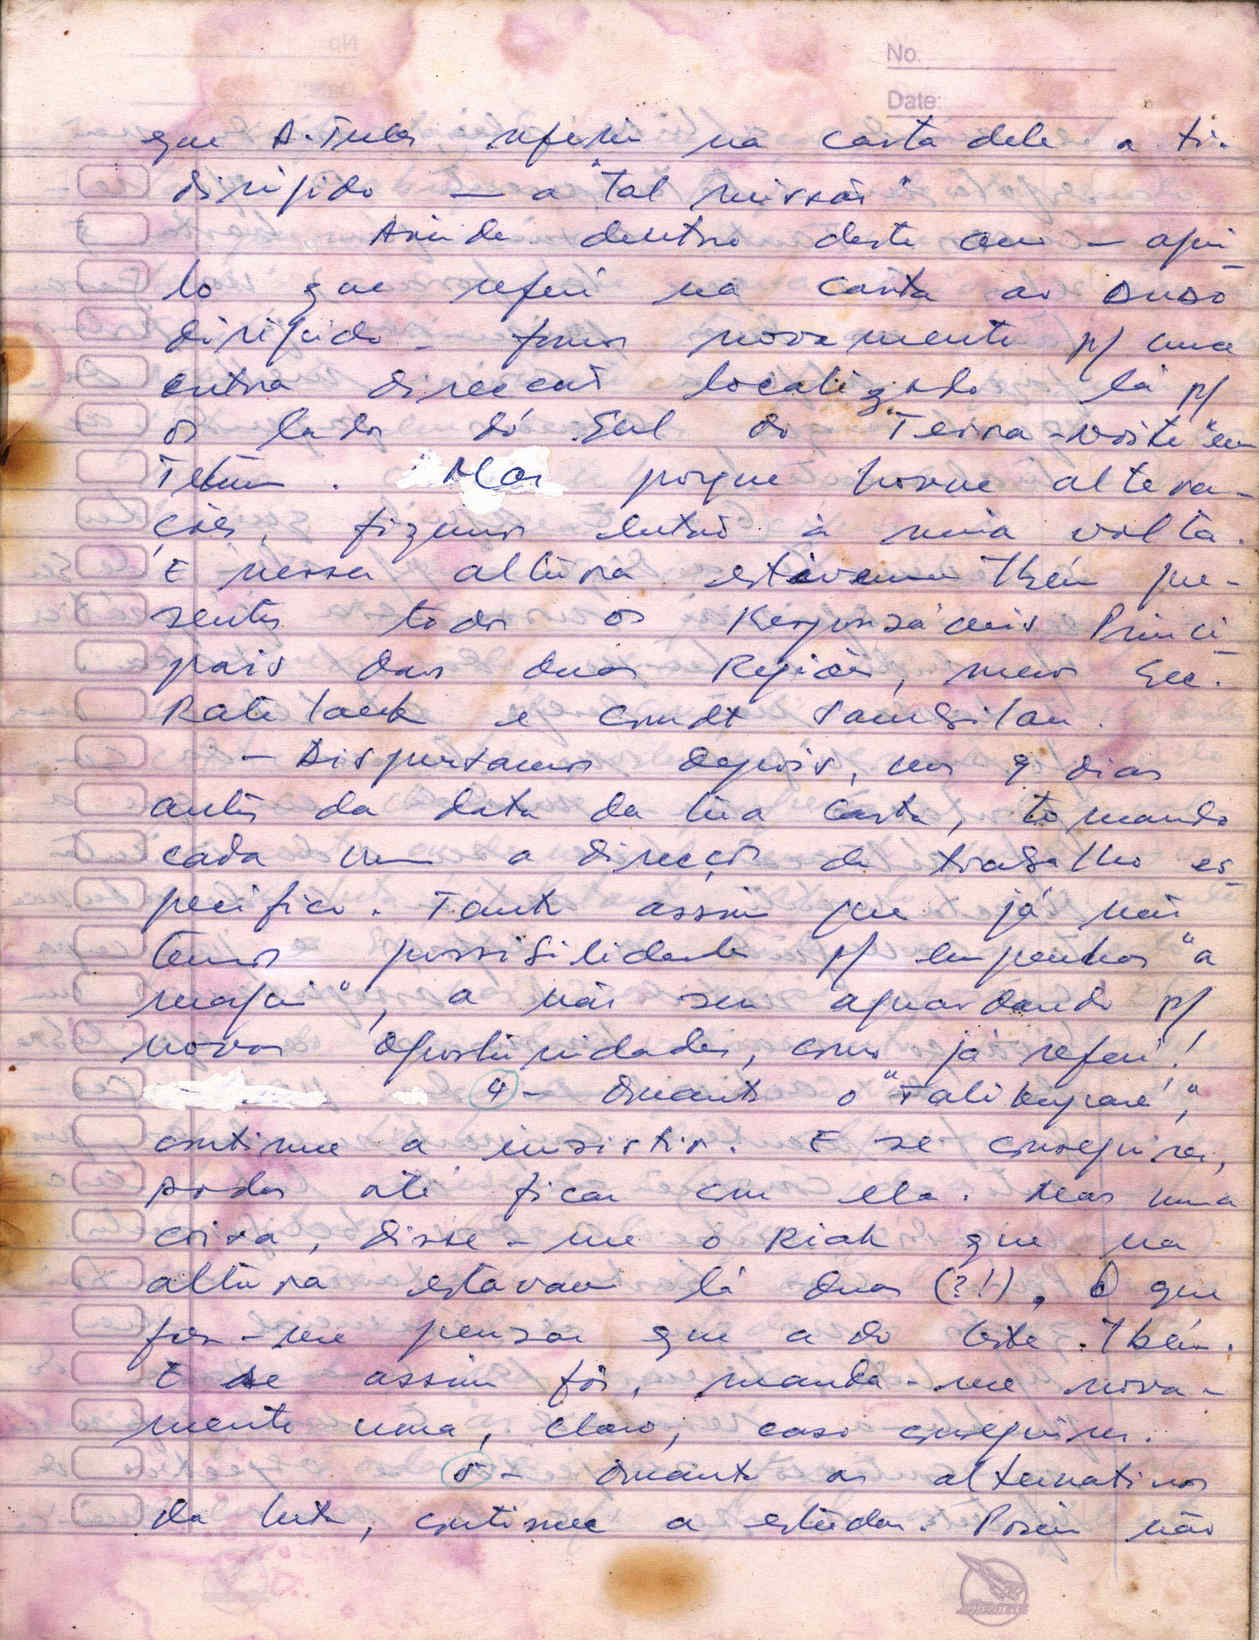 No.
Date:
que A. Tules referiu na carta dele a ti
dirigido — a "tal missão"
Ainda dentro deste ano — aqui
lo que referi na carta ao Ouso
dirigido — fomos novamente p/ uma
outra direccão localizado lá p/
os lados do Sul do "Teira-woite" em
Tetum. Mas porque houve altera-
ções, fizemos entrão à meia volta.
E nessa altura estávamos Tbém pre-
sentes todos os Responsáveis Princi-
pais das duas Regiões, menos Sec.
Rate laek e Cmdt Samsilan.
— Dispersamos depois, uns 9 dias
antes da data da tua carta, tomando
cada um a direcção de trabalho es-
pecífico. Tanto assim que já não
temos possibilidade p/ empenhos "a
magui", a não sem aguardando p/
novas oportunidades, como já referi!
4 - Quanto o "Talikupare",
continue a insistir. E se conseguires,
podes até ficar com ela. Mas uma
coisa, disse-me o Riak que na
altura estavam lá duas (?!), O que
fez-me pensar que a do leste Tbém.
E se assim for, manda-me nova-
mente uma, claro, caso conseguires.
5 - Quanto as alternativas
da luta, continue a estudar. Porém não